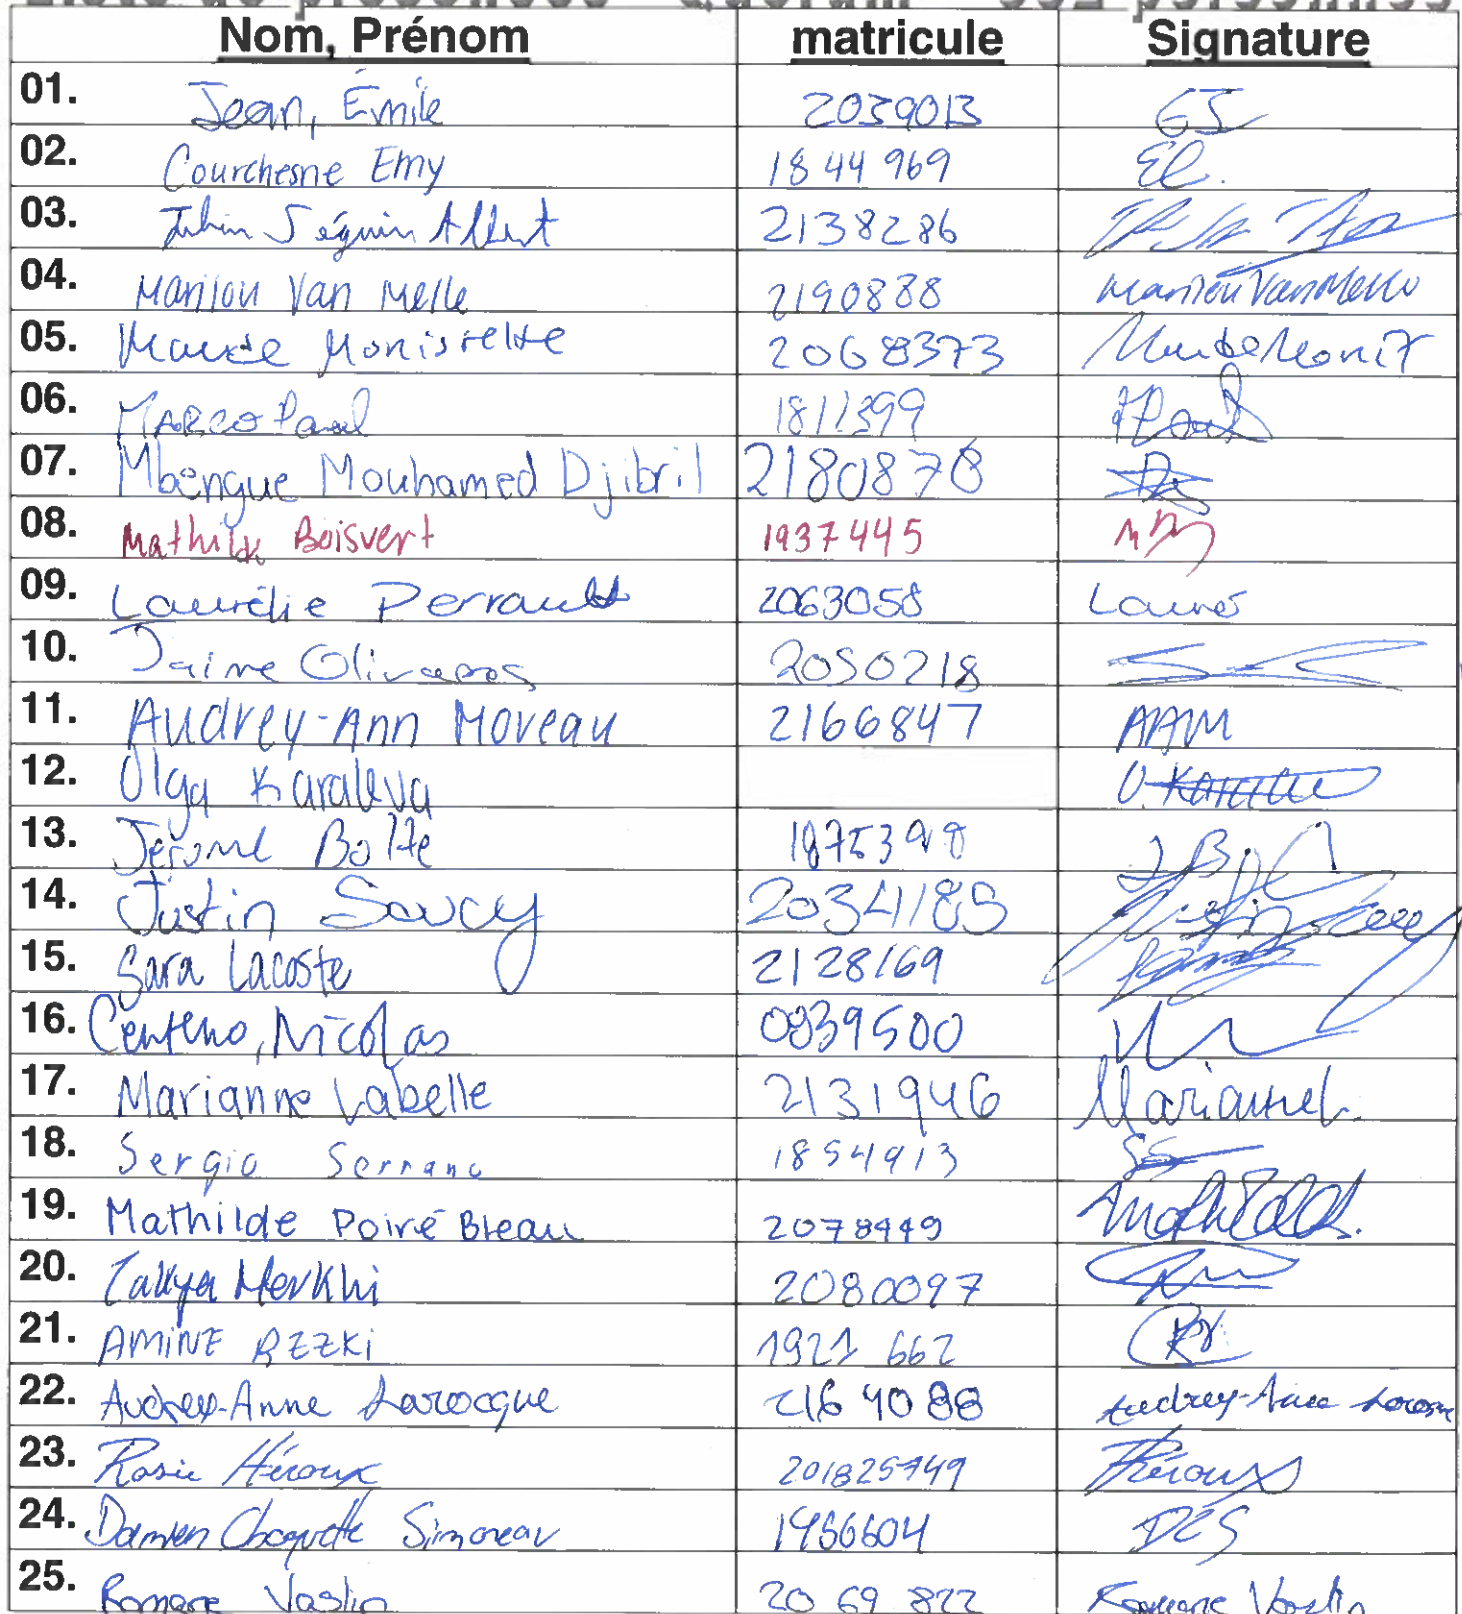 Liste de présences - Quorum - 352 personnes
Nom, Prénom matricule Signature
01. Jean, Émile 2039013 EJ
02. Courchesne Emy 1844 969 EC.
03. Séguin Albert 2138286
04. Marilou Van Melle 2190888 Marilou Van Melle
05. Maude Monistelte 2068373
06. Marco Paul 1811399
07. Mbengue Mouhamed Djibril 2180878
08. Mathilde Boisvert 1937445 MB
09. Laurélie Perrault 2063058
10. Jaime Olivares 2050218
11. Audrey-Ann Moreau 2166847 AAM
12. Olga Karaleva
13. Jérôme Bolte 1875398
14. Justin Saucy 2034185
15. Sara Lacoste 2128169
16. Centeno, Nicolas 0939500
17. Marianne Labelle 2131946 Marianne L.
18. Sergio Serrano 1854913 SS
19. Mathilde Poiré Bleau 2078449
20. Merkhi 2080097
21. AMINE REZKI 1921 662
22. Audrey-Anne Larocque 2164088 Audrey-Anne Larocque
23. Rosie Héroux 201825749 Héroux
24. Damien Choquette Simoneau 1956604 DCS
25. Romane Vaslin 20 69 822 Romane Vaslin